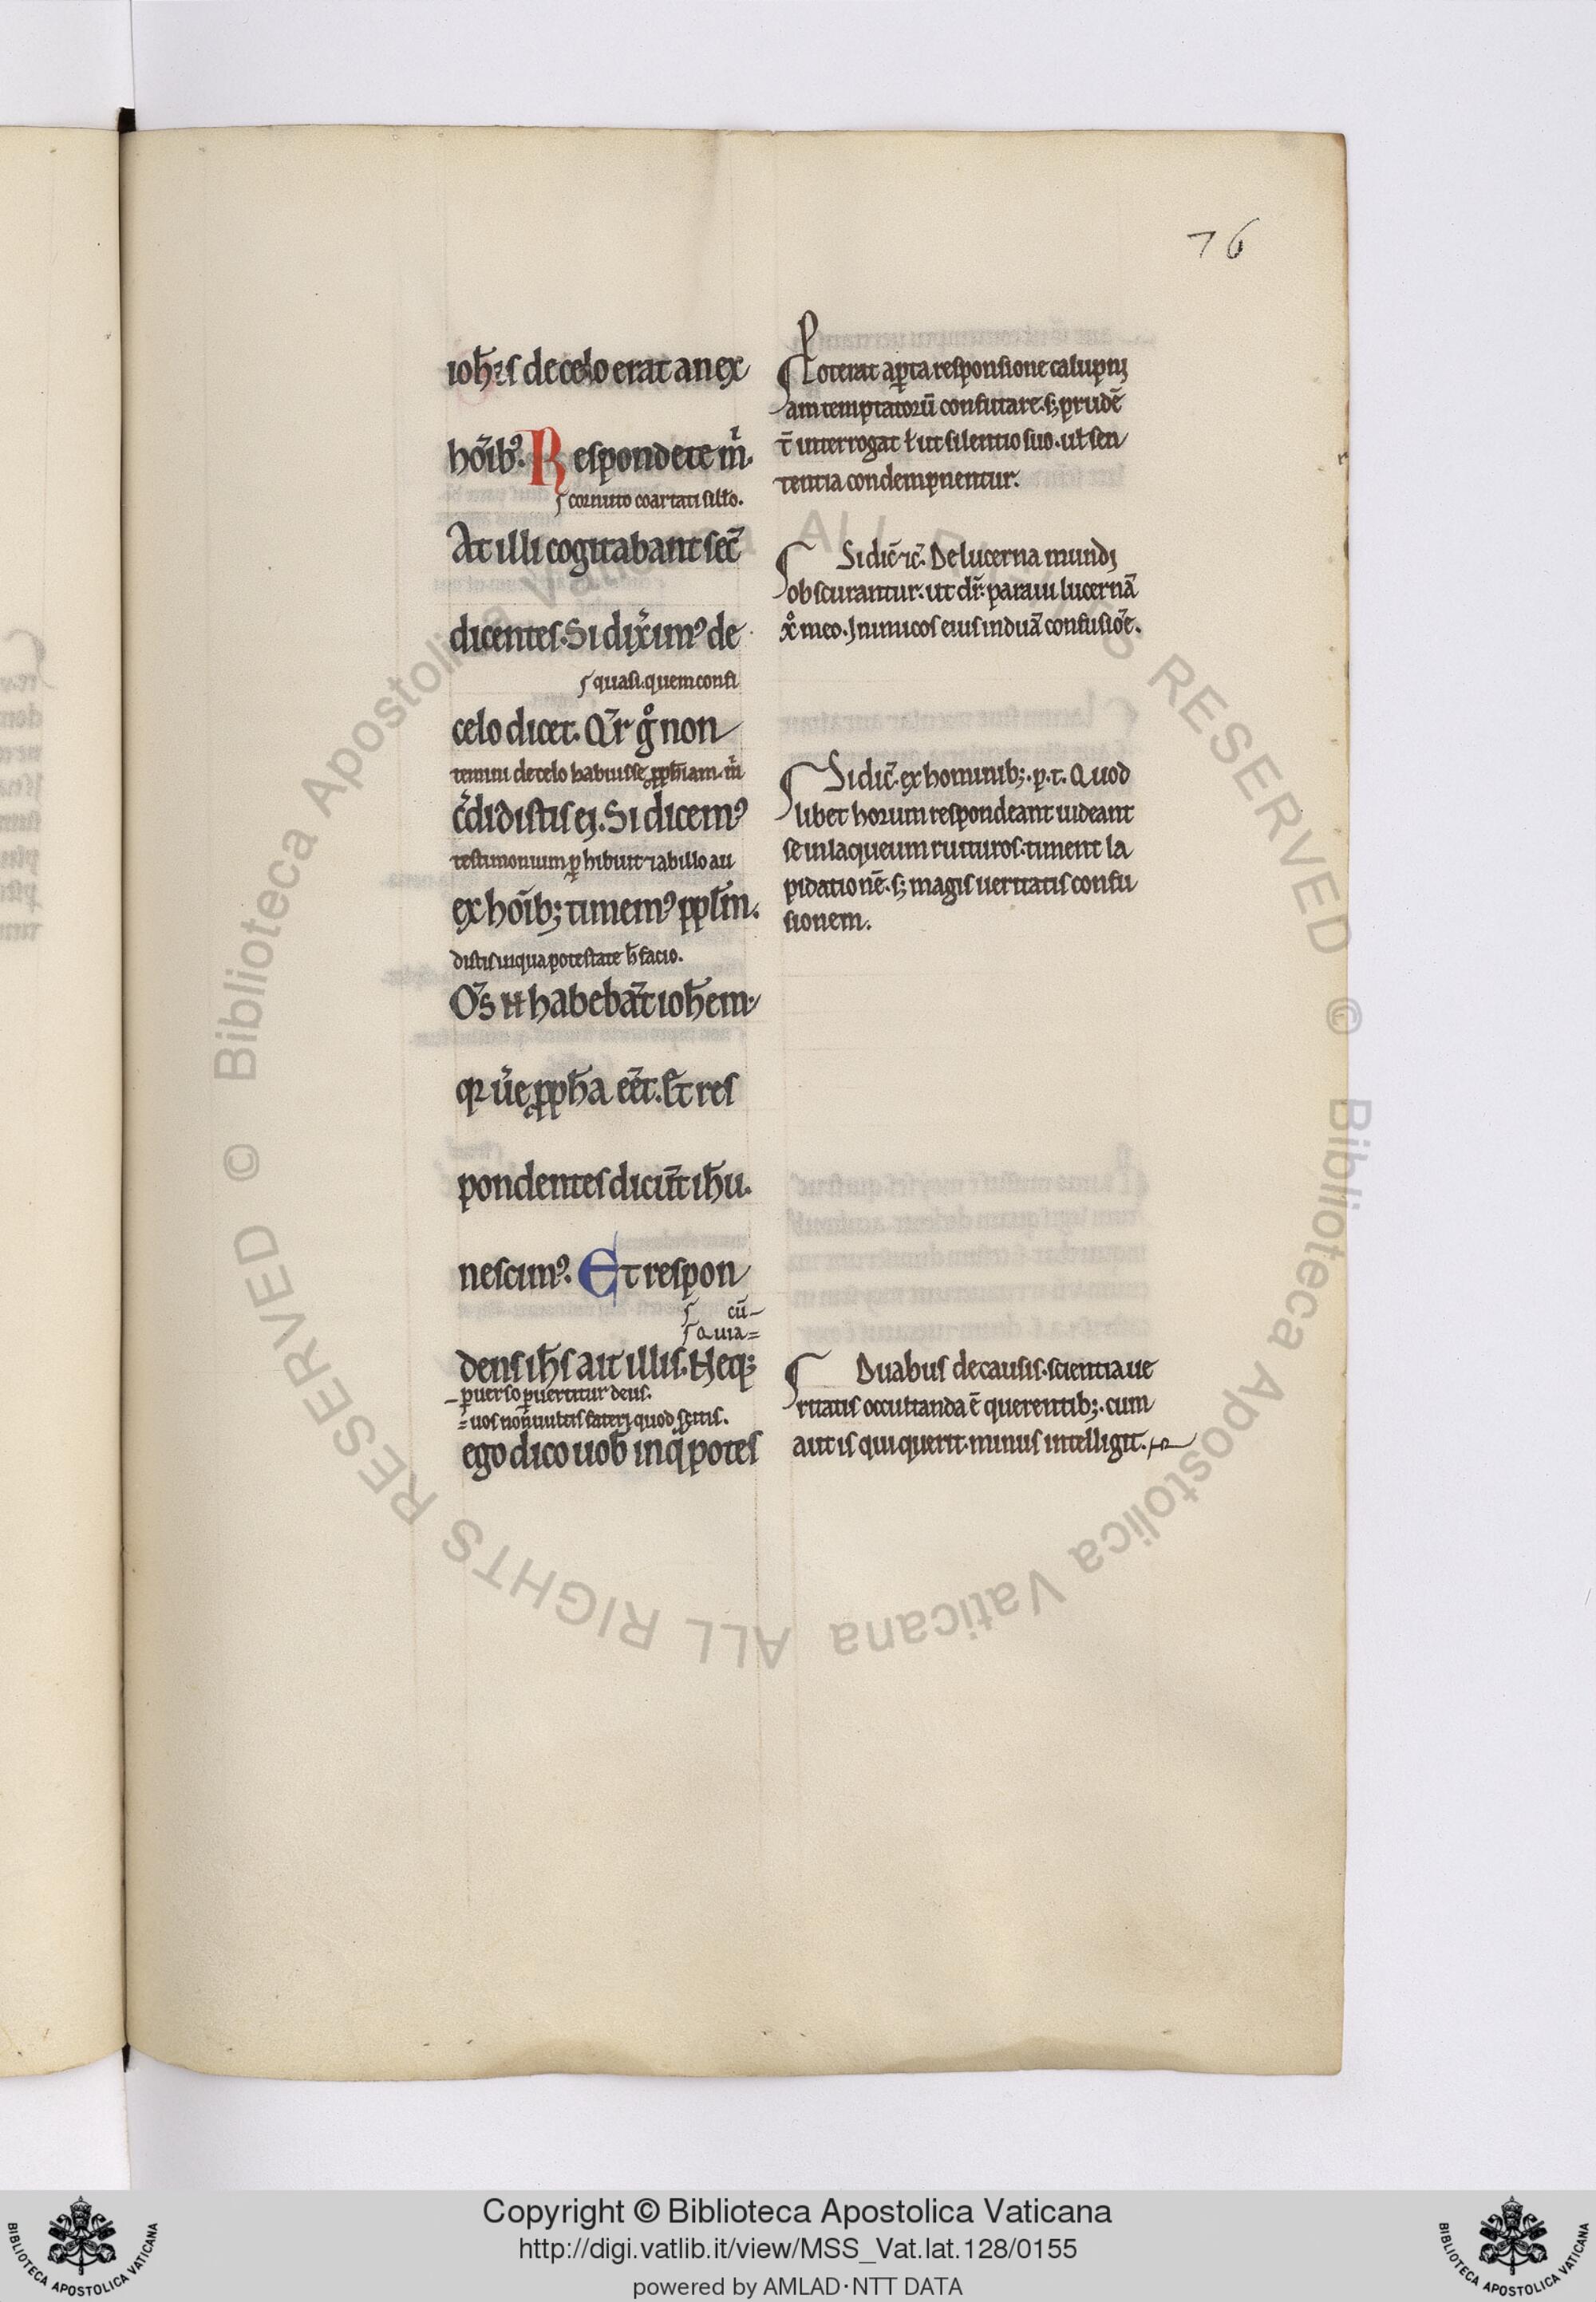 76
ioh̅is de celo erat an ex
ho̅ibꝰ. Respondete m̅.
cornuto coartati sillo.
At illi cogitabant sec̅
dicentes. Si diximꝰ de
quasi. quem confi
celo dicet. Q̅r g̊ non
temini de celo habuisse ꝓph̅iam. m̅
c̅didistis ei. Si dicemꝰ
testimonium ꝑhibuit ⁊ ab illo au
ex ho̅ib; timemꝰ ppl̅m.
distis in qua potestate h̅ facio.
O̅s n̅ habeba̅t ioh̅em.
qꝛ u̅e ꝓph̅a e̅et. Et res
pondentes dicu̅t ih̅u.
nescimꝰ. Et respon
cu̅-
Quia=
dens ih̅s ait illis. Neq;
-ꝑuerso ꝑuertitur deus.
=uos non uultis fateri quod scitis.
ego dico uob̅ in q̅ potes
Poterat aꝑta responsione calupni
am temptatoru̅ confutare. s; prude̅
t̅ interrogat ł ut silentio suo. ul̅ sen
tentia condempnentur.
Si dic̅ ⁊c̅. De lucerna mundi
obscurantur. ut dr̅. paraui lucerna̅
x̊ meo. Inimicos eius indua̅ confusio̅e.
Si dic̅. ex hominib;. p. t. Quod
libet horum respondeant uideant
se in laqueum ruituros. timent la
pidatione̅. s; magis ueritatis confu
sionem.
Duabus de causis. scientia ue
ritatis occultanda e̅ querentib;. cum
aut is qui querit. minus intelligit.
© Biblioteca Apostolica Vaticana ALL RIGHTS RESERVED © Biblioteca Apostolica Vaticana ALL RIGHTS RESERVED
Copyright © Biblioteca Apostolica Vaticana
http://digi.vatlib.it/view/MSS_Vat.lat.128/0155
powered by AMLAD·NTT DATA
BIBLIOTECA APOSTOLICA VATICANA
BIBLIOTECA APOSTOLICA VATICANA